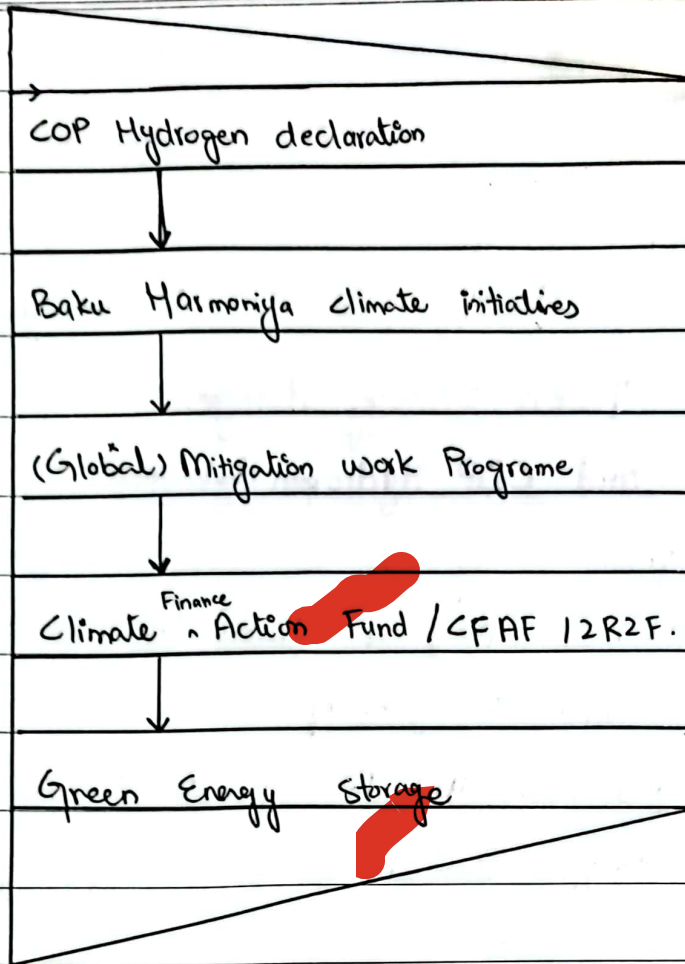 COP Hydrogen declaration
Baku Harmoniya climate initiatives
(Global) Mitigation work Programe
Finance
Climate ^ Action Fund / CFAF 12R2F.
Green Energy Storage